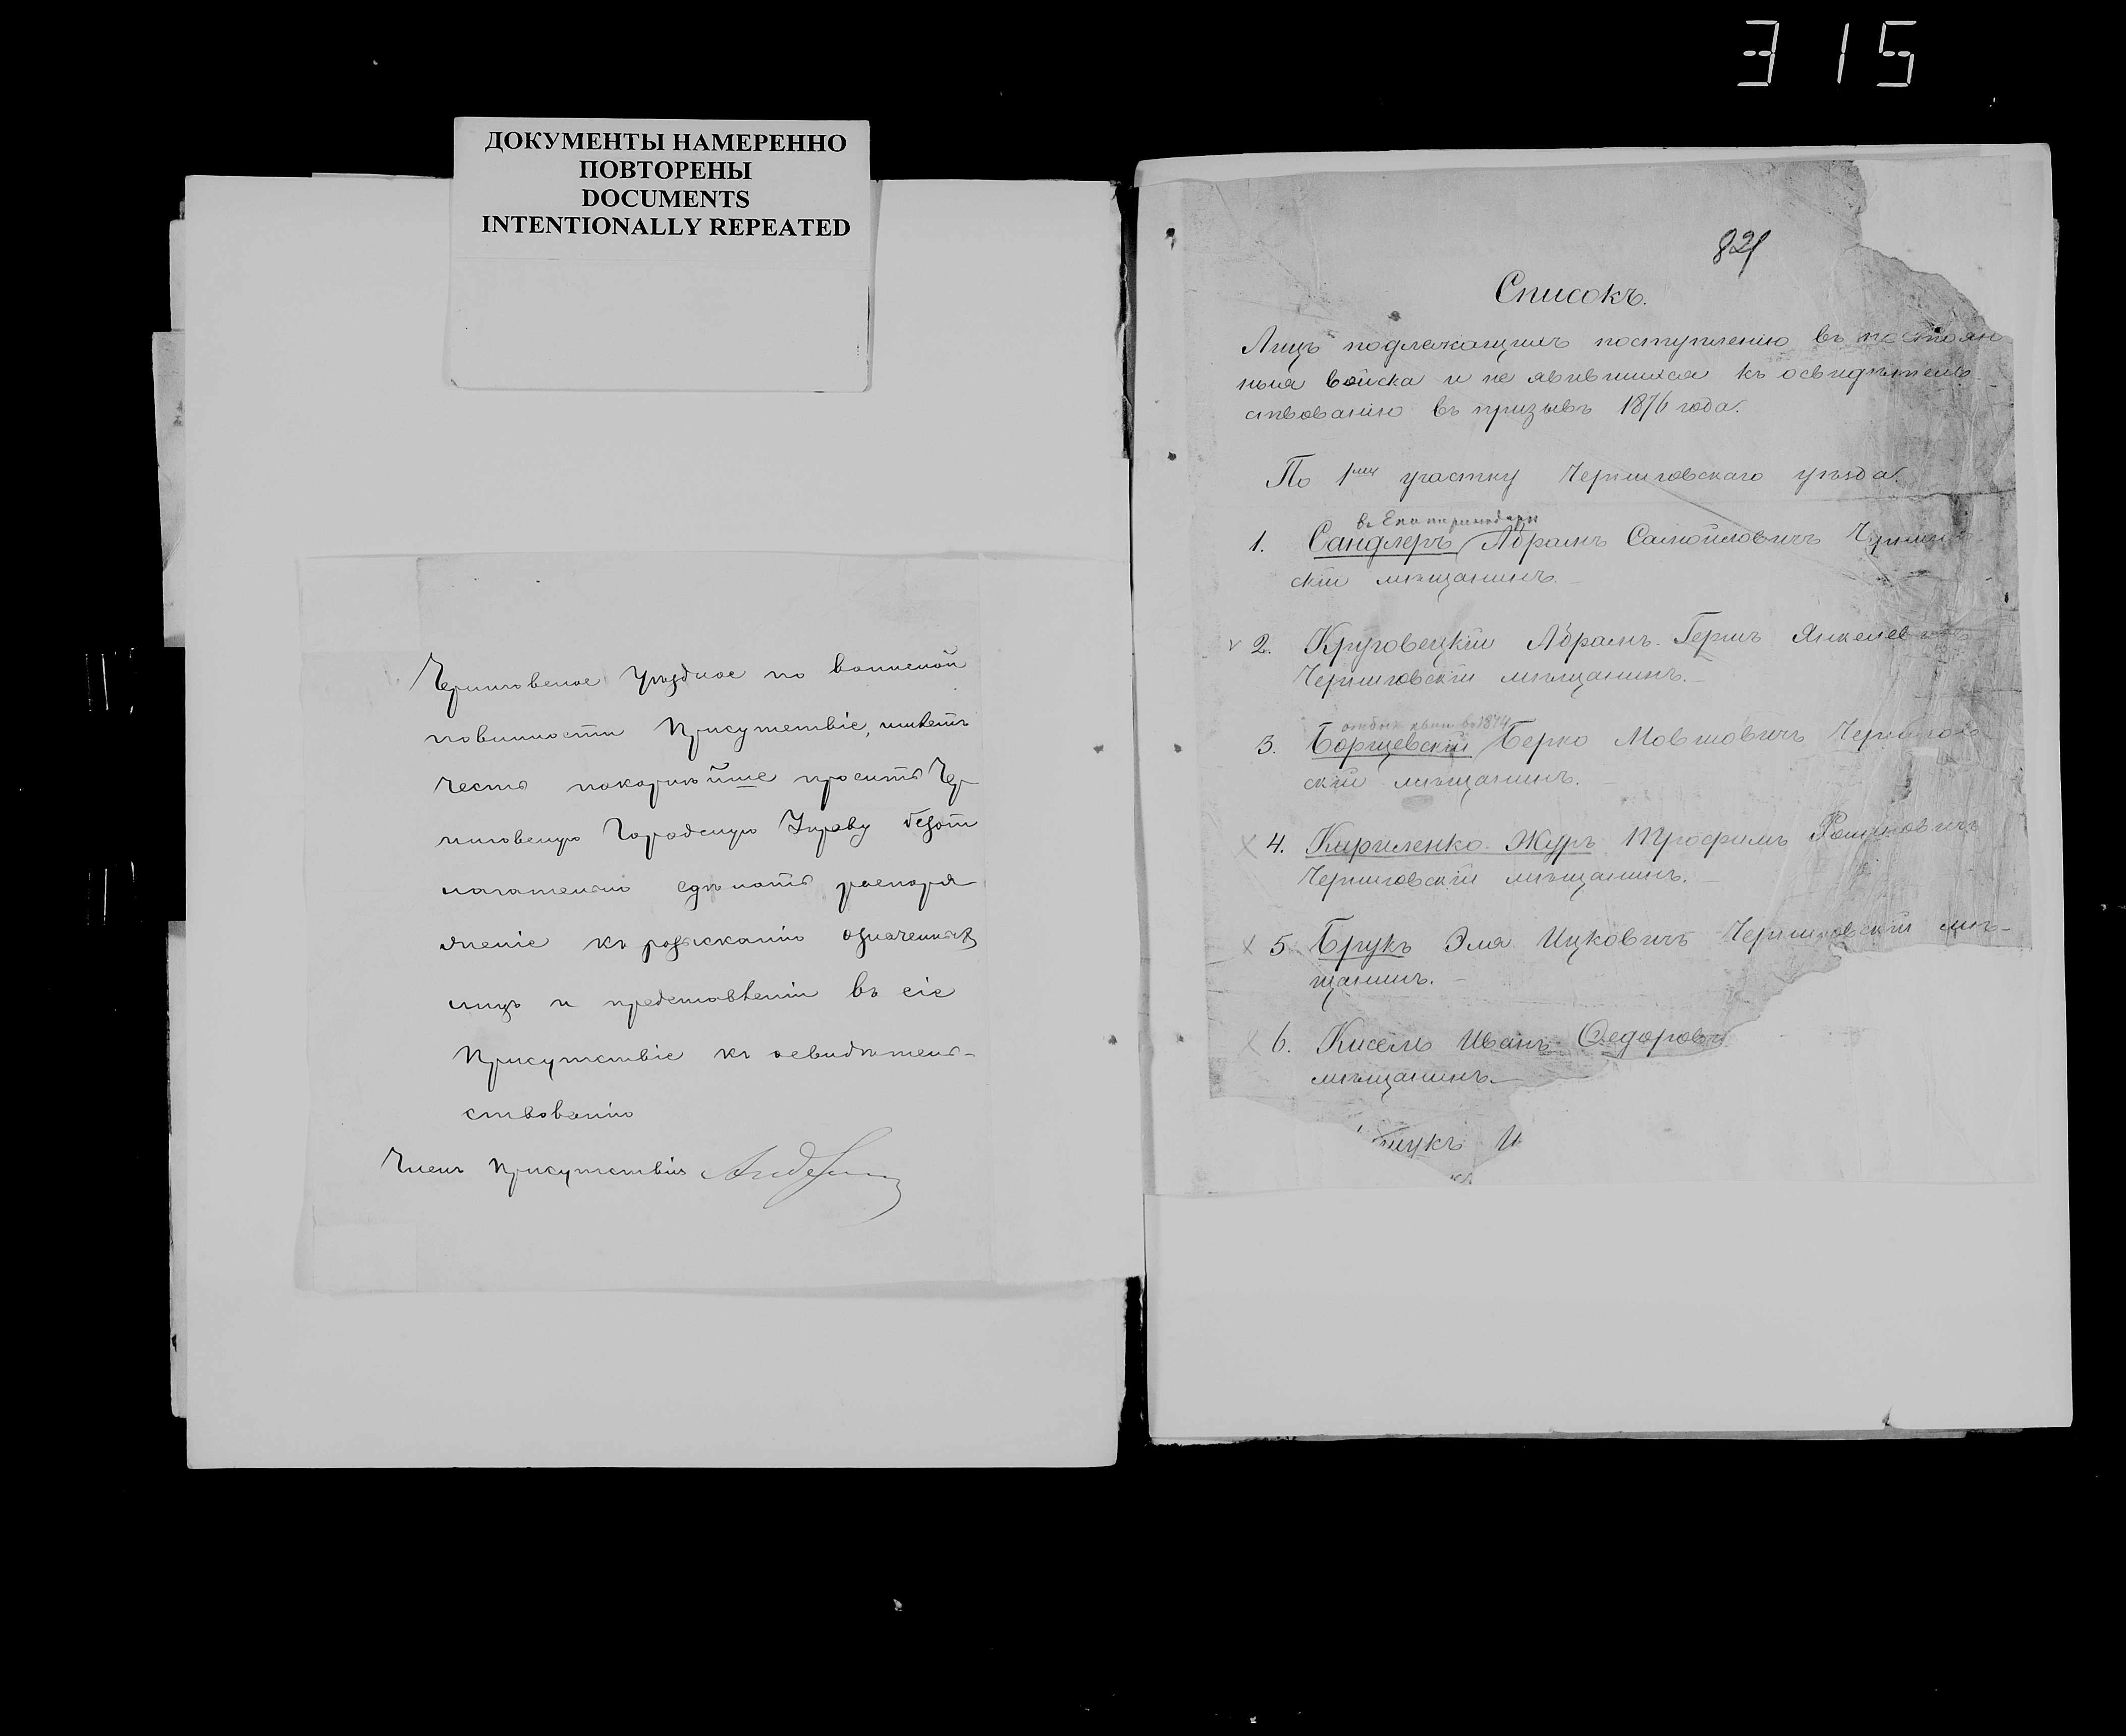 315
ДОКУМЕНТЫ НАМЕРЕННО
ПОВТОРЕНЫ
DOCUMENTS
INTENTIONALLY REPEATED
Черниговское Уѣздное по воинской
повинности Присутствіе, имѣетъ
честь покорнѣйше просить Чер
ниговскую Городскую Управу безот
лагательно сдѣлать распоря
женіе къ розысканію означенныхъ
лицъ и представленіи въ сіе
Присутствіе къ освидѣтель-
ствованію
Членъ Присутствія
821
Списокъ.
Лицъ подлежащихъ поступленію въ постоян
ныя войска и не явившихся къ освидѣтель-
ствованію въ призывъ 1876 года.
По 1му участку Черниговскаго уѣзда.
въ Екатеринодарѣ
1. Сандлеръ Абрамъ Самойловичъ Чернигов
скій мѣщанинъ.
v 2. Круговецкій Абрамъ-Гершъ Янкелев
Черниговскій мѣщанинъ.
въ 1874
3. Борщевскій Берко Мовшовичъ Чернигов
скій мѣщанинъ.
x 4. Кириленко-Журъ Трофимъ Романовичъ
Черниговскій мѣщанинъ.
x 5. Брукъ Эля Ицковичъ Черниговскій мѣ-
щанинъ.
x 6. Кисель Иванъ Федорови
мѣщанинъ.
укъ И